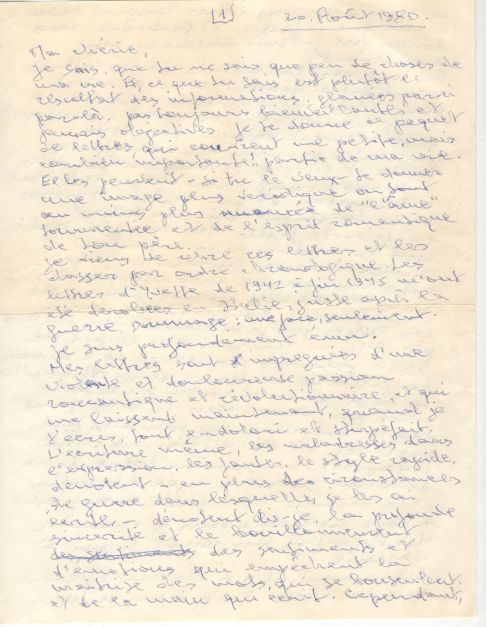 1
20. Août 1980.
Ma chérie,
Je sais, que tu ne sais que peu de choses de
ma vie. Et, ce que tu sais est plutôt le
résultat des informations, glanées par ci
par là, pas toujours bienveillantes et
jamais objectives. Je te donne ce paquet
de lettres qui couvrent une petite, mais
combien importante! partie de ma vie.
Elles peuvent - si tu le veux - te donner
une image plus véridique ou tout
au moins plus nuancée de "l'âme"
tourmentée et de l'esprit romantique
de ton père.
Je viens de relire ces lettres et les
classer par ordre chronologique. Les
lettres d'Yvette de 1942 à fin 1945 m'ont
été dérobées en Italie, juste après la
guerre. Dommage: une foie, seulement.
Je suis profondément ému.
Mes lettres sont imprégnées d'une
violente et douloureuse passion
romantique et révolutionnaire, et qui
me laissent maintenant, quand je
t'écris, tout endolori et stupéfait.
L'écriture même, les maladresses dans
l'expression, les fautes, le style rapide,
dénotent - en plus des circonstances
de guerre dans lesquelles, je les ai
écrites -, dénotent dis-je, la profonde
sincérité et le bouillonnement
des sentiments des sentiments et
d'émotions qui empêchent la
maîtrise des mots, qui se bousculent.
et de la main qui écrit. Cependant,